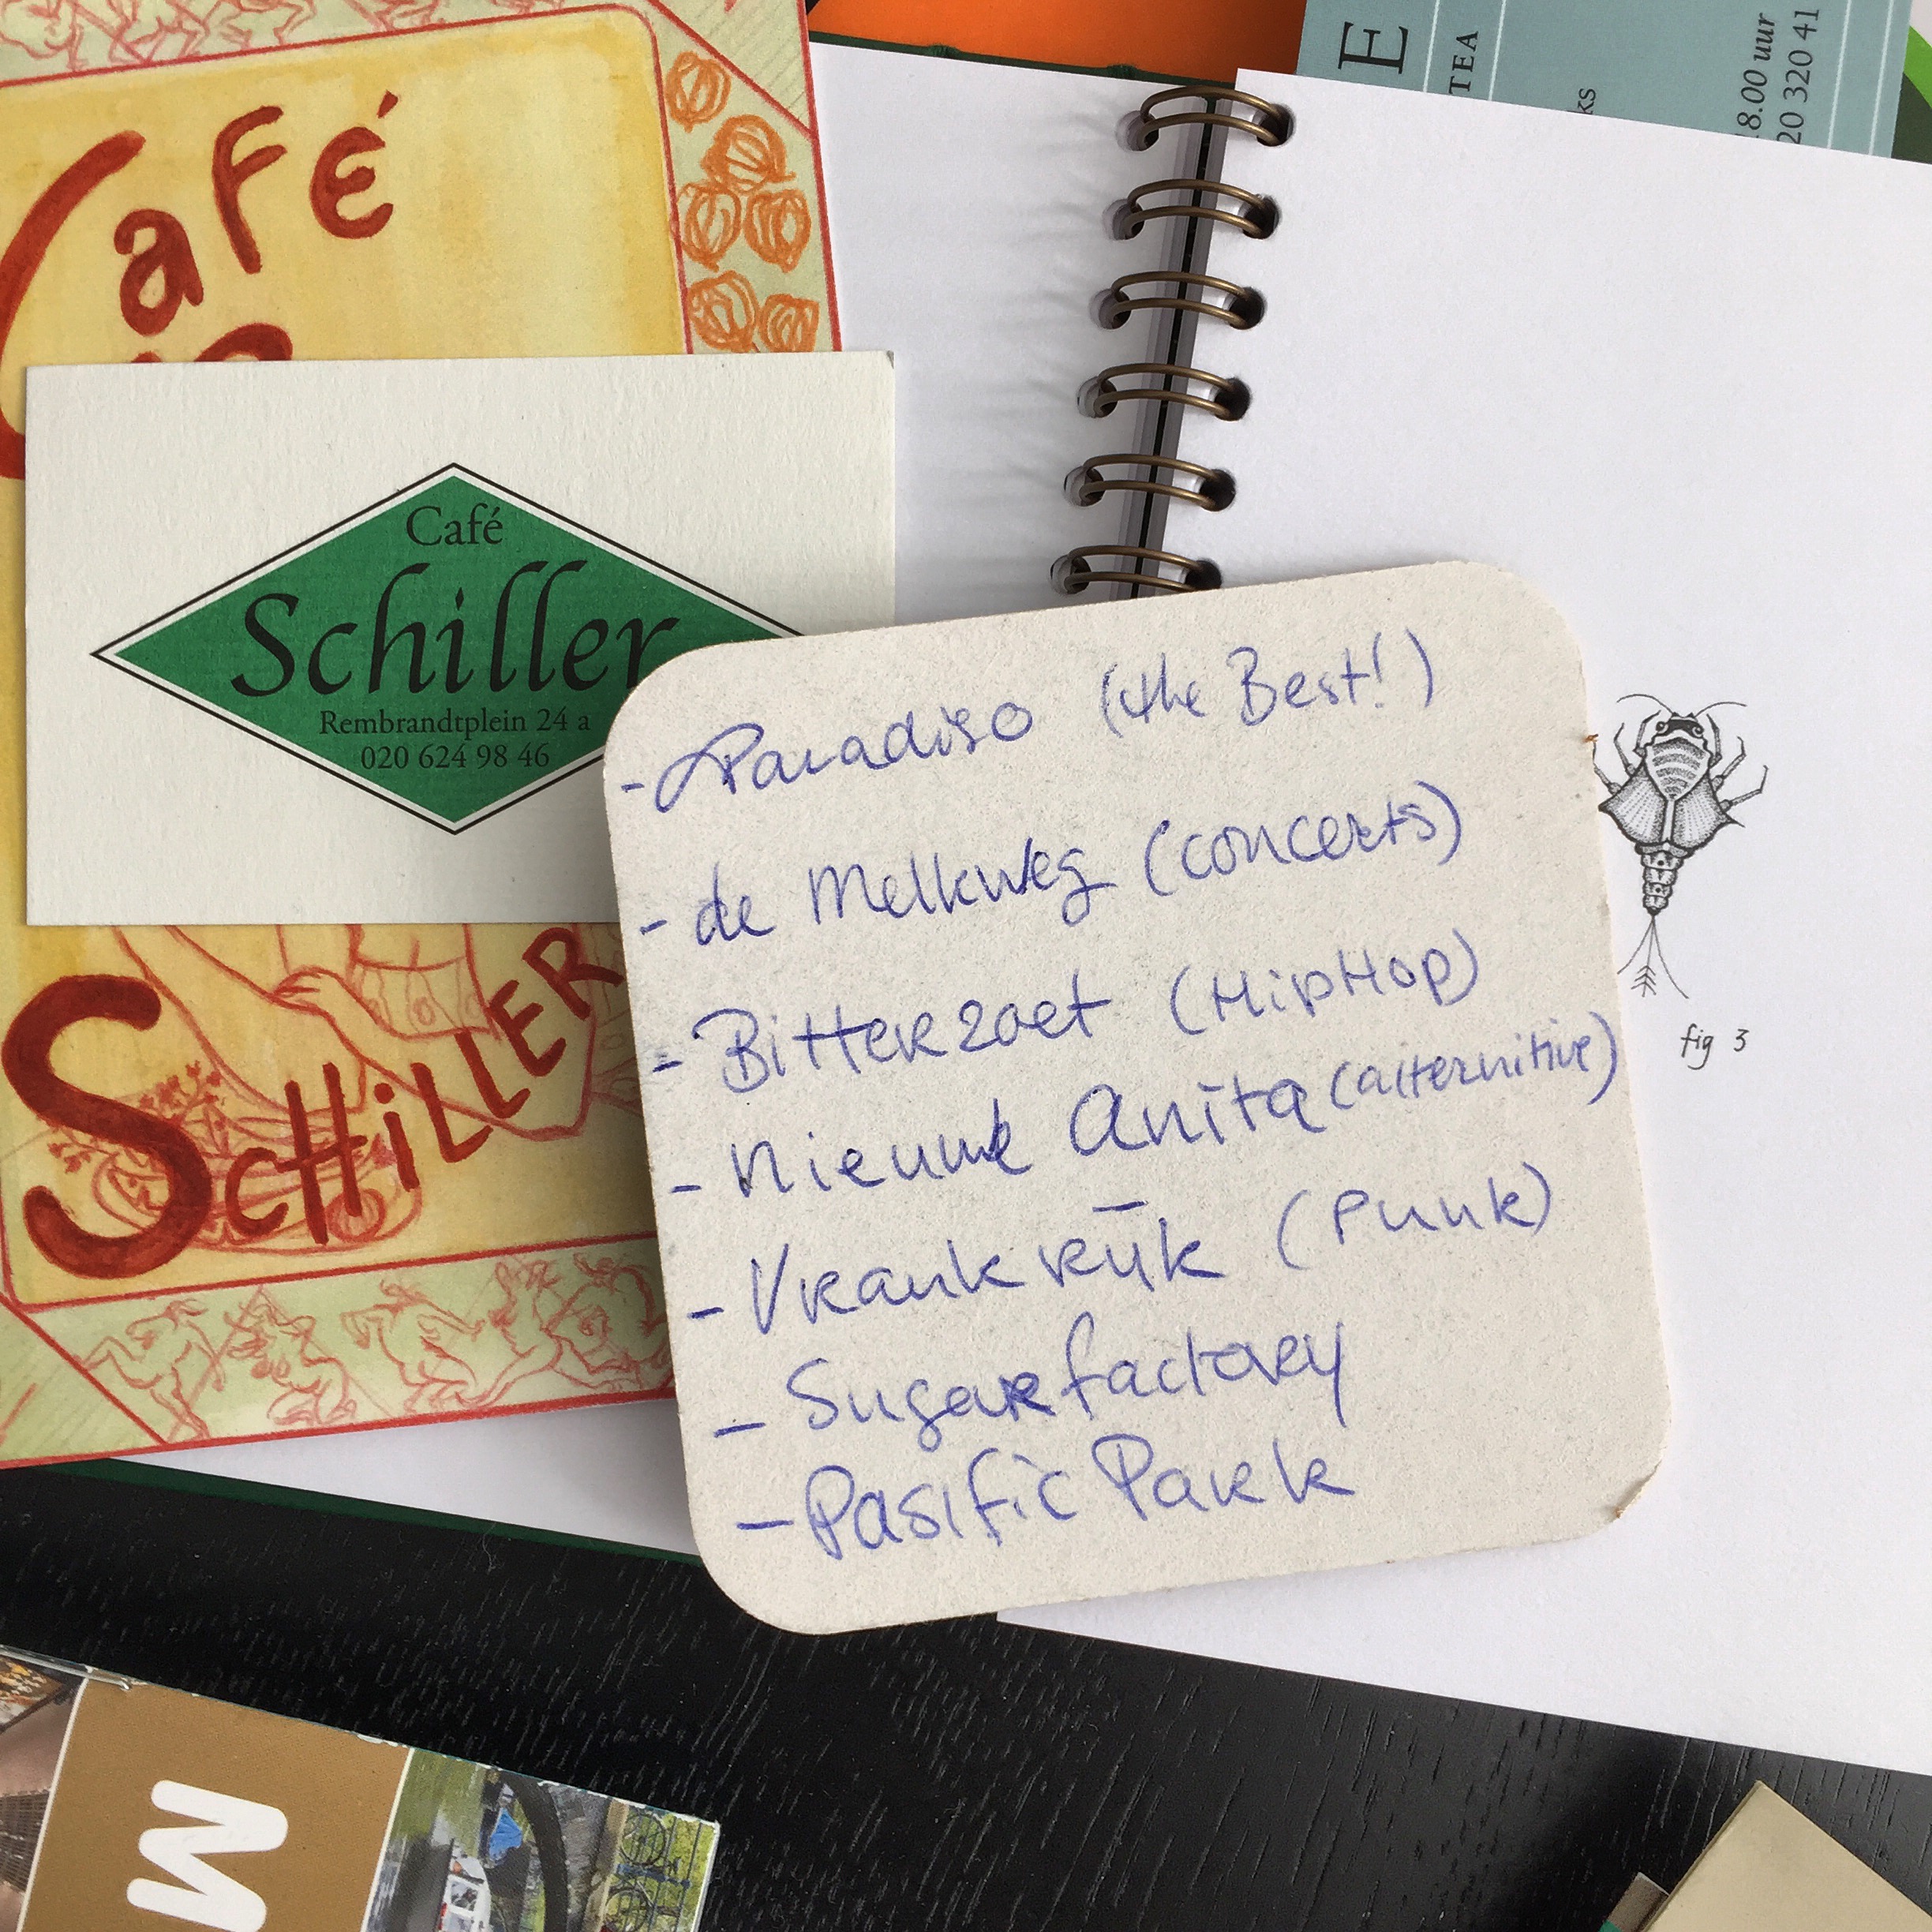 Café
Café
Schiller
Rembrandtplein 24 a
020 624 98 46
SCHILLER
- Paradiso (the Best!)
- de Melkweg (concerts)
- Bitterzoet (HipHop)
- Nieuwe Anita (alternitive)
- Vrankrijk (Punk)
- Sugarfactory
- Pasific Park
fig 3
E
TEA
ks
18.00 uur
20 320 41
M